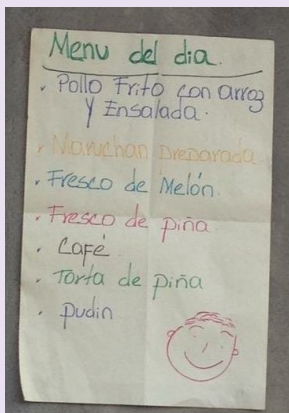 Menu del dia.
. Pollo Frito con arroz
y Ensalada.
. Maruchan preparada
. Fresco de Melón.
. Fresco de piña
. Café
. Torta de piña
. pudin